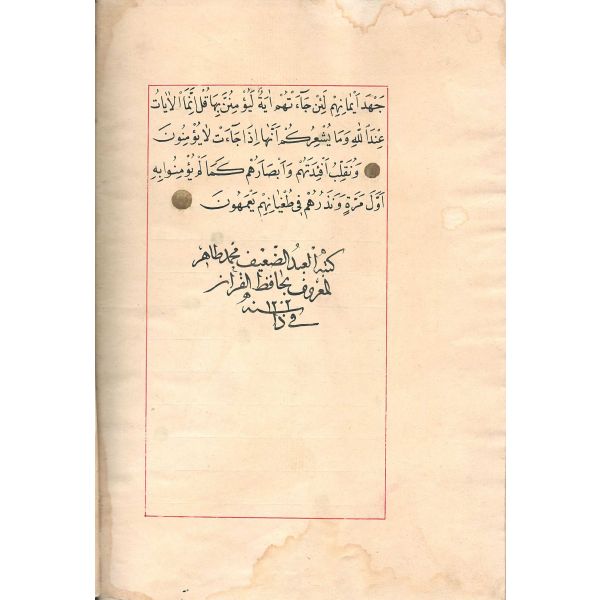 جَهْدَ اَيْمَانِهِمْ لَئِنْ جَاءَتْهُمْ اٰيَةٌ لَيُؤْمِنُنَّ بِهَا قُلْ اِنَّمَا الْاٰيَاتُ
عِنْدَ اللّٰهِ وَمَا يُشْعِرُكُمْ اَنَّهَا اِذَا جَاءَتْ لَا يُؤْمِنُونَ
وَنُقَلِّبُ اَفْئِدَتَهُمْ وَاَبْصَارَهُمْ كَمَا لَمْ يُؤْمِنُوا بِهِ
اَوَّلَ مَرَّةٍ وَنَذَرُهُمْ فِى طُغْيَانِهِمْ يَعْمَهُونَ
كتبه العبد الضعيف محمد طاهر
المعروف بحافظ القرآن
سنه ١٢٠٢
في